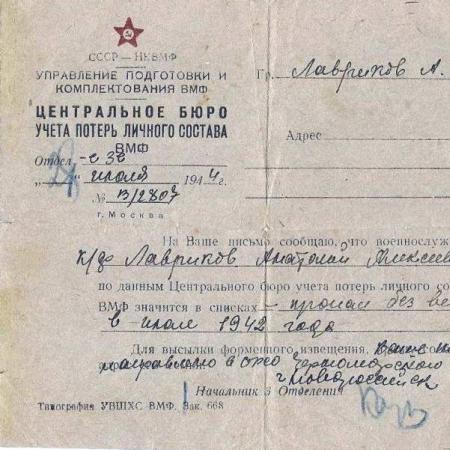 СССР — НКВМФ
УПРАВЛЕНИЕ ПОДГОТОВКИ И
КОМПЛЕКТОВАНИЯ ВМФ
ЦЕНТРАЛЬНОЕ БЮРО
УЧЕТА ПОТЕРЬ ЛИЧНОГО СОСТАВА
ВМФ
Отдел
июля 1944г.
№ В/2807
г. Москва
Гр. Лавриков А.
Адрес
На Ваше письмо сообщаю, что военнослуж
к/ф Лавриков Анатолий Алексее
по данным Центрального бюро учета потерь личного со
ВМФ значится в списках — пропал без ве
в июле 1942 года
Для высылки форменного извещения,
направлено в Черноморского
г Новороссийск
Начальник 3 Отделения
Типография УВШХС ВМФ. Зак. 668